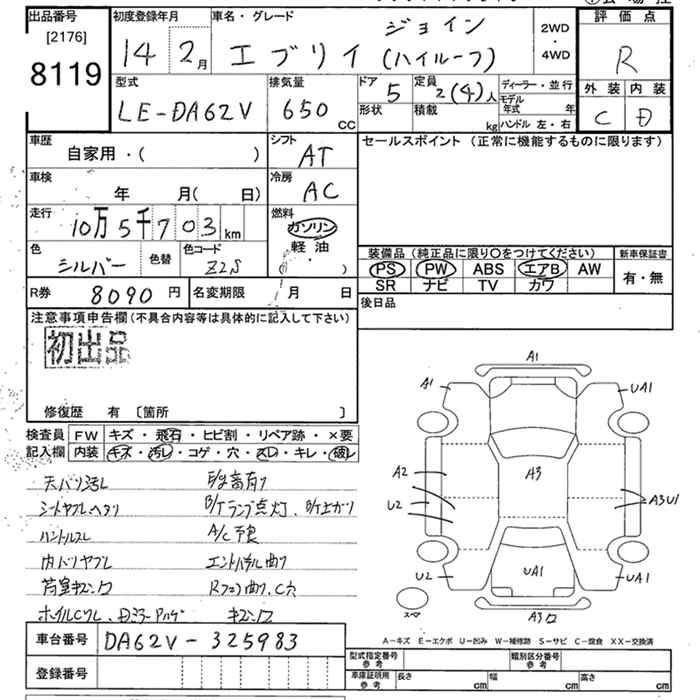 出品番号
[2176]
8119
初度登録年月
14 2月
車名・グレード
ジョイン
エブリイ (ハイルーフ)
2WD
・
4WD
評価点
R
外装 内装
C D
型式
LE-DA62V
排気量
650 CC
ドア 5
形状
定員 2(4)人
積載 kg
ディーラー・並行
モデル年式 年
ハンドル 左・右
車歴
自家用・( )
シフト
AT
車検
年 月( 日)
冷房
AC
走行
10万5千703km
燃料
ガソリン
軽油
( ・ )
色
シルバー
色替
色コード
Z2S
R券 8090円
名変期限 月 日
セールスポイント (正常に機能するものに限ります)
装備品 (純正品に限り○をつけてください)
PS PW ABS エアB AW
SR ナビ TV カワ
新車保証書
有・無
後日品
注意事項申告欄(不具合内容等は具体的に記入して下さい)
初出品
修復歴 有 〔箇所 〕
検査員記入欄
FW キズ・飛石・ヒビ割・リペア跡・×要
内装 キズ・汚レ・コゲ・穴・スレ・キレ・破レ
天バリ汚レ
シートヤブレヘタリ
ハンドルスレ
内バリヤブレ
荷室キズ凹
B/Tランプ点灯、B/T上がり
A/C不良
エンドパネル曲り
車台番号 DA62V-325983
登録番号
A1
A1
UA1
A2
U2
A3
A3U1
U2
UA1
UA1
A3凹
スペア
A-キズ E-エクボ U-凹み W-補修跡 S-サビ C-腐食 XX-交換済
型式指定番号 参考
類別区分番号 参考
車庫証明用 参考
長さ cm
幅 cm
高さ cm